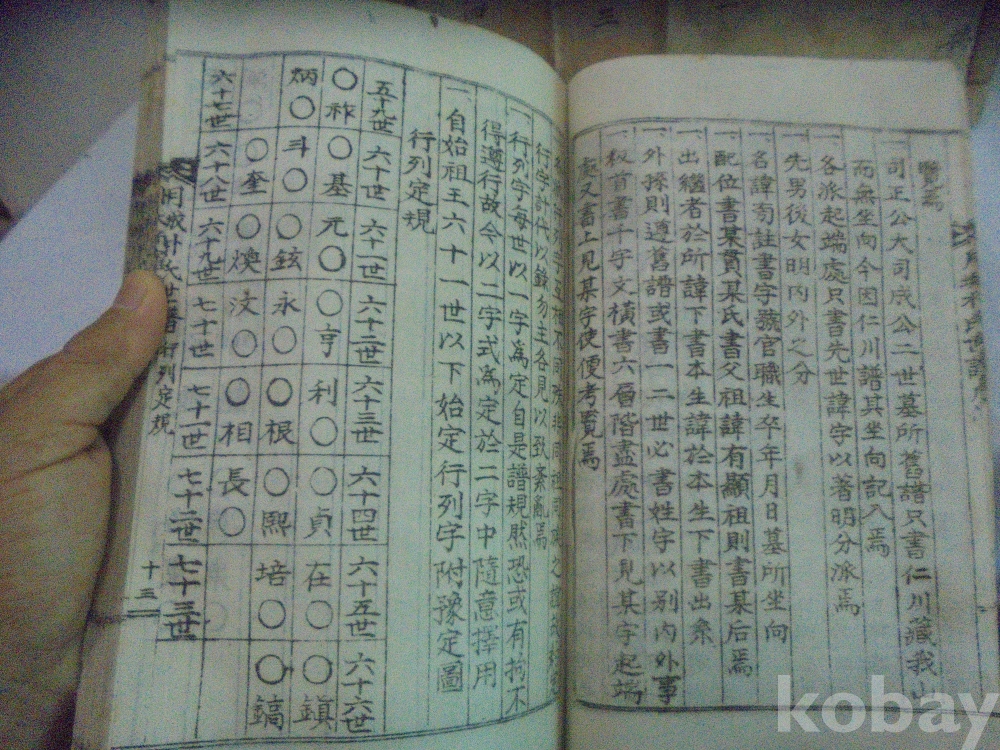 覽焉
一司正公大司成公二世墓所舊譜只書仁川藏我山
而無坐向今因仁川譜其坐向記入焉
一各派起端處只書先世諱字以著明分派焉
一先男後女明內外之分
一名諱旁註書字號官職生卒年月日墓所坐向
一配位書某貫某氏書父祖諱有顯祖則書某后焉
一出繼者於所諱下書本生諱於本生下書出系
一外孫則遵舊譜或書一二世必書姓字以別內外事
一板首書千字文橫書六層階盡處書下見某字起端
處又書上見某字使便考覽焉
行字計代以錄勿主各見以致紊亂焉
一行列字每世以一字爲定自是譜規然恐或有拘不
得遵行故今以二字式爲定於二字中隨意擇用
一自始祖王六十一世以下始定行列字附豫定圖
行列定規
五十九世 六十世 六十一世 六十二世 六十三世 六十四世 六十五世 六十六世
○祚 ○基 元○ ○亨 利○ ○貞 在○ ○鎮
炳○ 斗○ ○鉉 永○ ○根 ○熙 培○ ○鎬
六十七世 六十八世 六十九世 七十世 七十一世 七十二世 七十三世
○奎 ○煥 汶○ ○相 長○
世譜 行列定規
十三
kobay